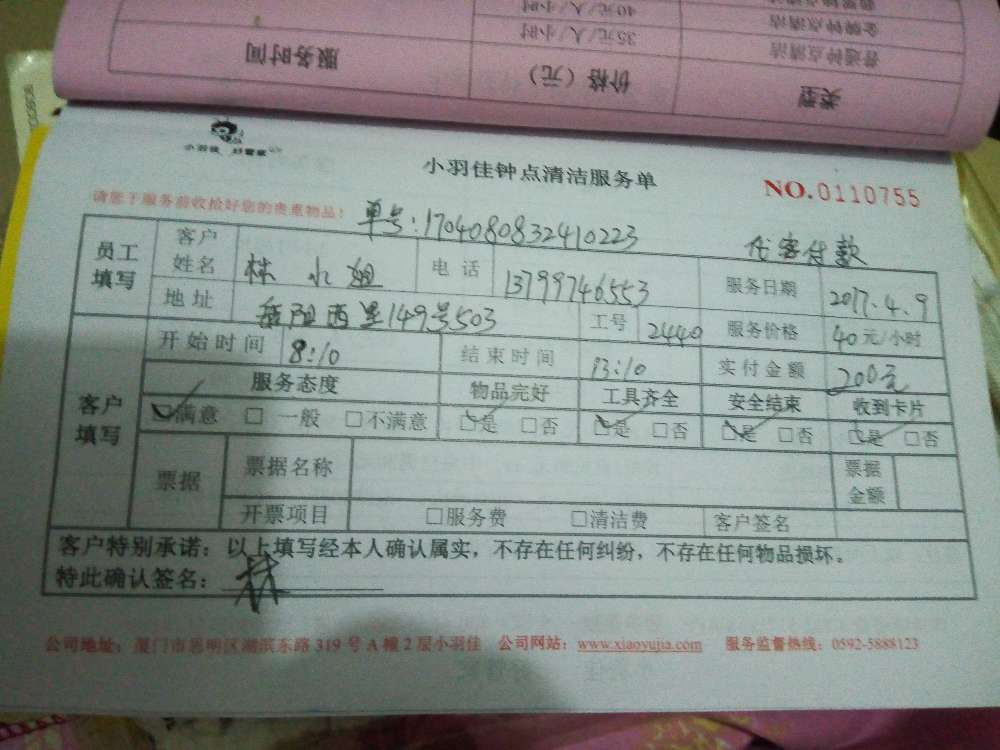 服务时间 价格（元） 类型
35元/人/小时 普通钟点清洁
40元/人/小时 金牌钟点清洁
小羽佳 好管家
小羽佳钟点清洁服务单
NO.0110755
请您于服务前收捡好您的贵重物品！
单号:1704080832410223
代客付款
员工填写 客户姓名 林小姐 电话 13799746553 服务日期 2017.4.9
地址 岳阳西里149号503 工号 2440 服务价格 40元/小时
客户填写 开始时间 8:10 结束时间 13:10 实付金额 200元
服务态度 物品完好 工具齐全 安全结束 收到卡片
☑满意 □一般 □不满意 ☑是 □否 ☑是 □否 ☑是 □否 ☑是 □否
票据 票据名称 票据金额
开票项目 □服务费 □清洁费 客户签名
客户特别承诺：以上填写经本人确认属实，不存在任何纠纷，不存在任何物品损坏。
特此确认签名：林
公司地址：厦门市思明区湖滨东路319号A幢2层小羽佳 公司网站：www.xiaoyujia.com 服务监督热线：0592-5888123